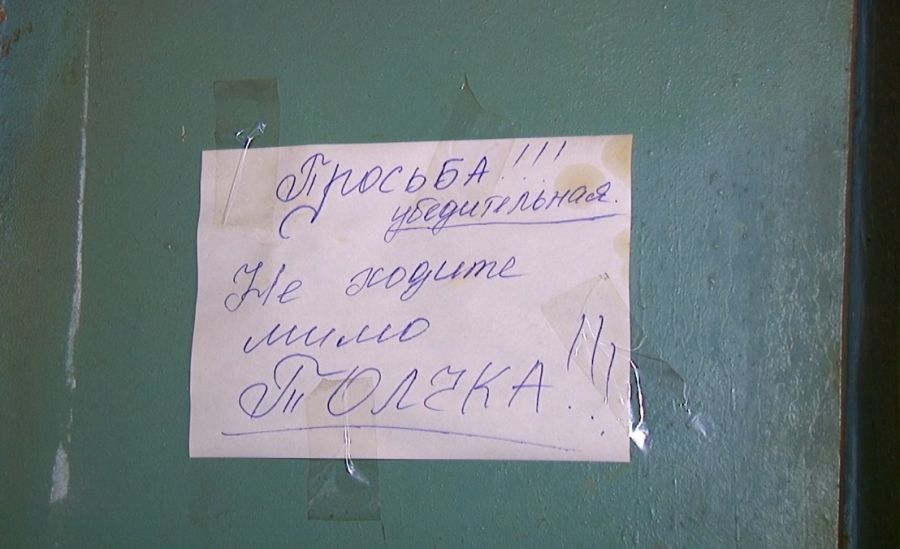 Просьба!!!
убедительная.
Не ходите
мимо
ТОЛЧКА!!!